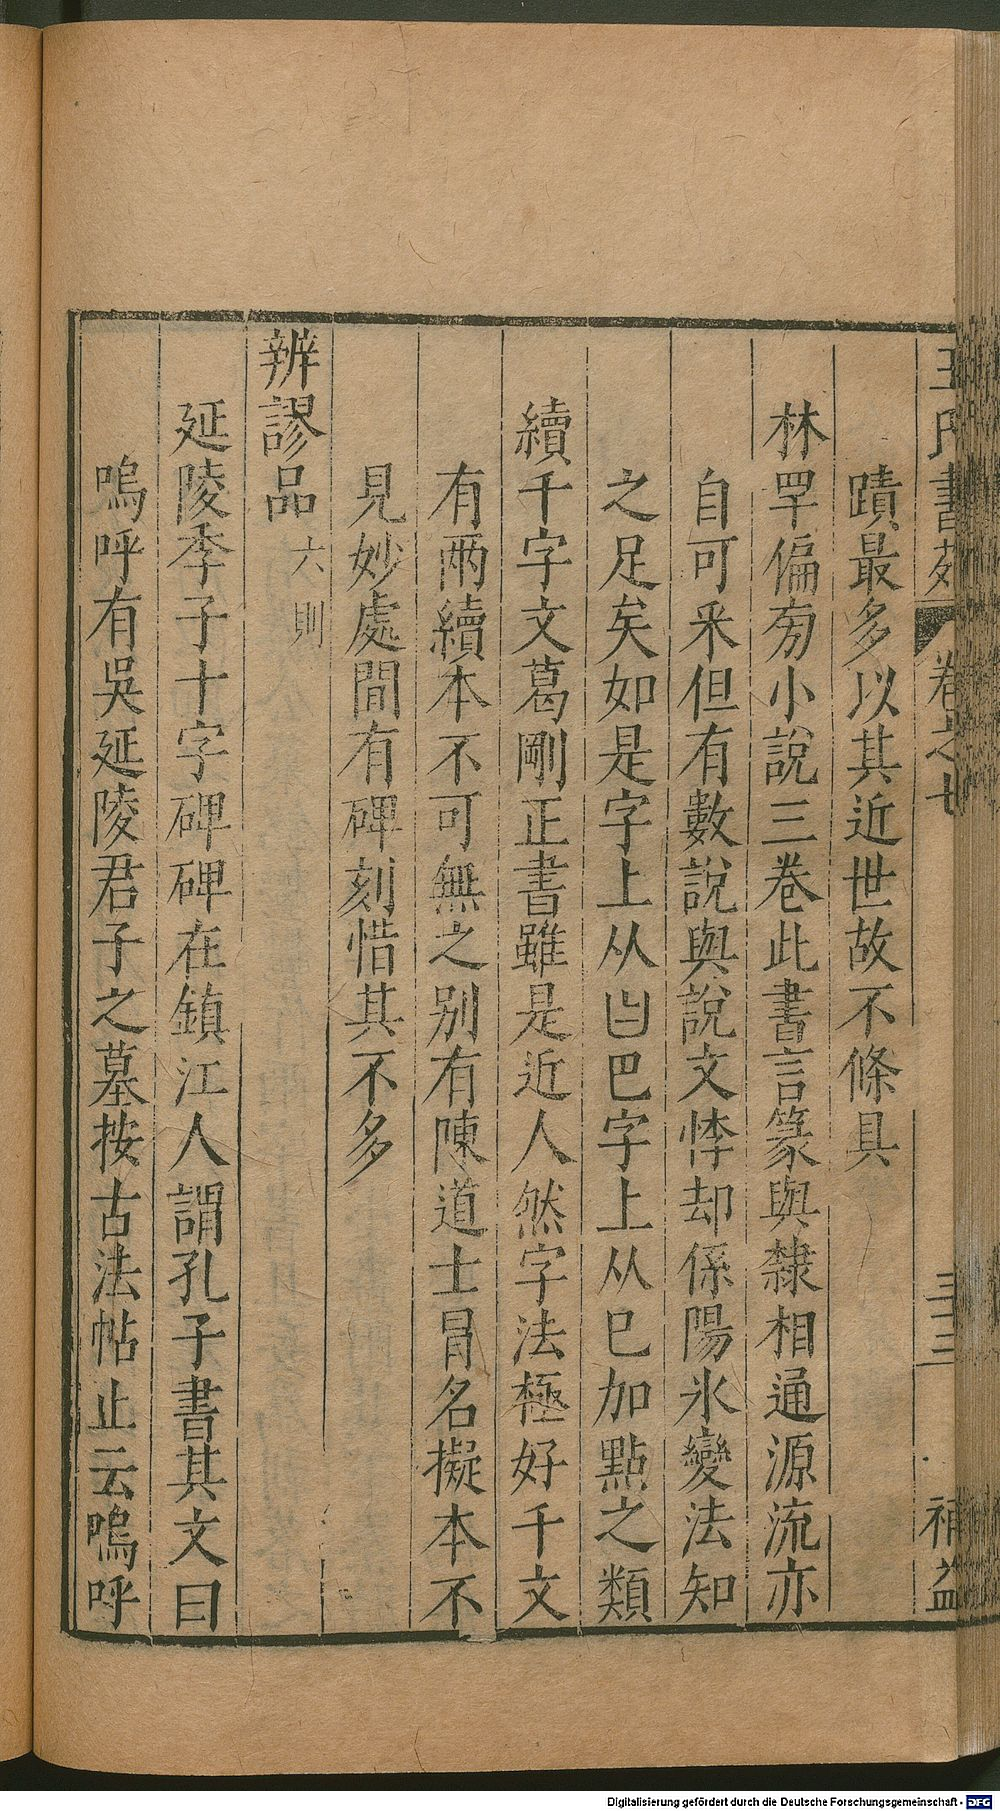 王氏書苑 卷之七 三十三 補益
蹟最多以其近世故不條具
林罕偏旁小說三卷此書言篆與隸相通源流亦
自可采但有數說與說文悖却係陽氷變法知
之足矣如是字上从㫐巴字上从巳加點之類
續千字文葛剛正書雖是近人然字法極好千文
有兩續本不可無之別有陳道士冒名擬本不
見妙處間有碑刻惜其不多
辨謬品 六則
延陵季子十字碑碑在鎮江人謂孔子書其文曰
嗚呼有吳延陵君子之墓按古法帖止云嗚呼
Digitalisierung gefördert durch die Deutsche Forschungsgemeinschaft - DFG